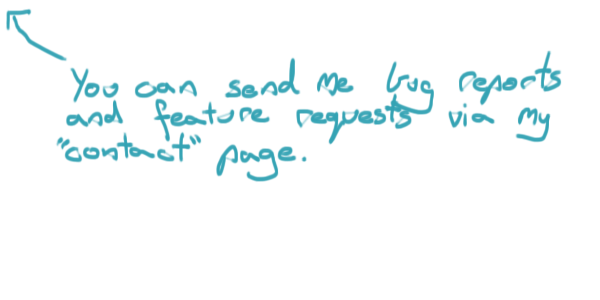 You can send me bug reports
and feature requests via my
"contact" page.